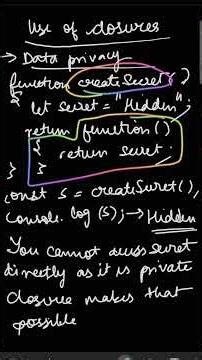 Use of closures
→ Data privacy
function createSecret()
{ let secret = "Hidden";
return function()
{
return secret;
}
}
const s = createSecret();
console.log(s); → Hidden
You cannot access secret
directly as it is private
closure makes that
possible